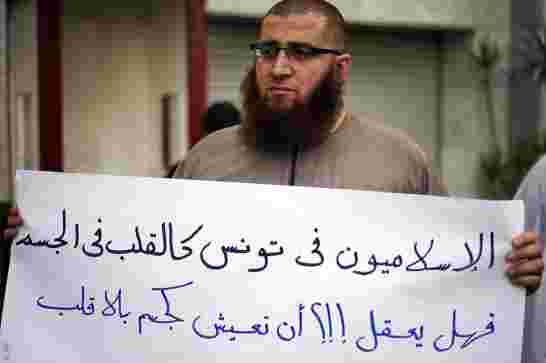 الإسلاميون فى تونس كالقلب فى الجسم
فهل يعقل !!!؟ أن نعيش كجسم بلا قلب